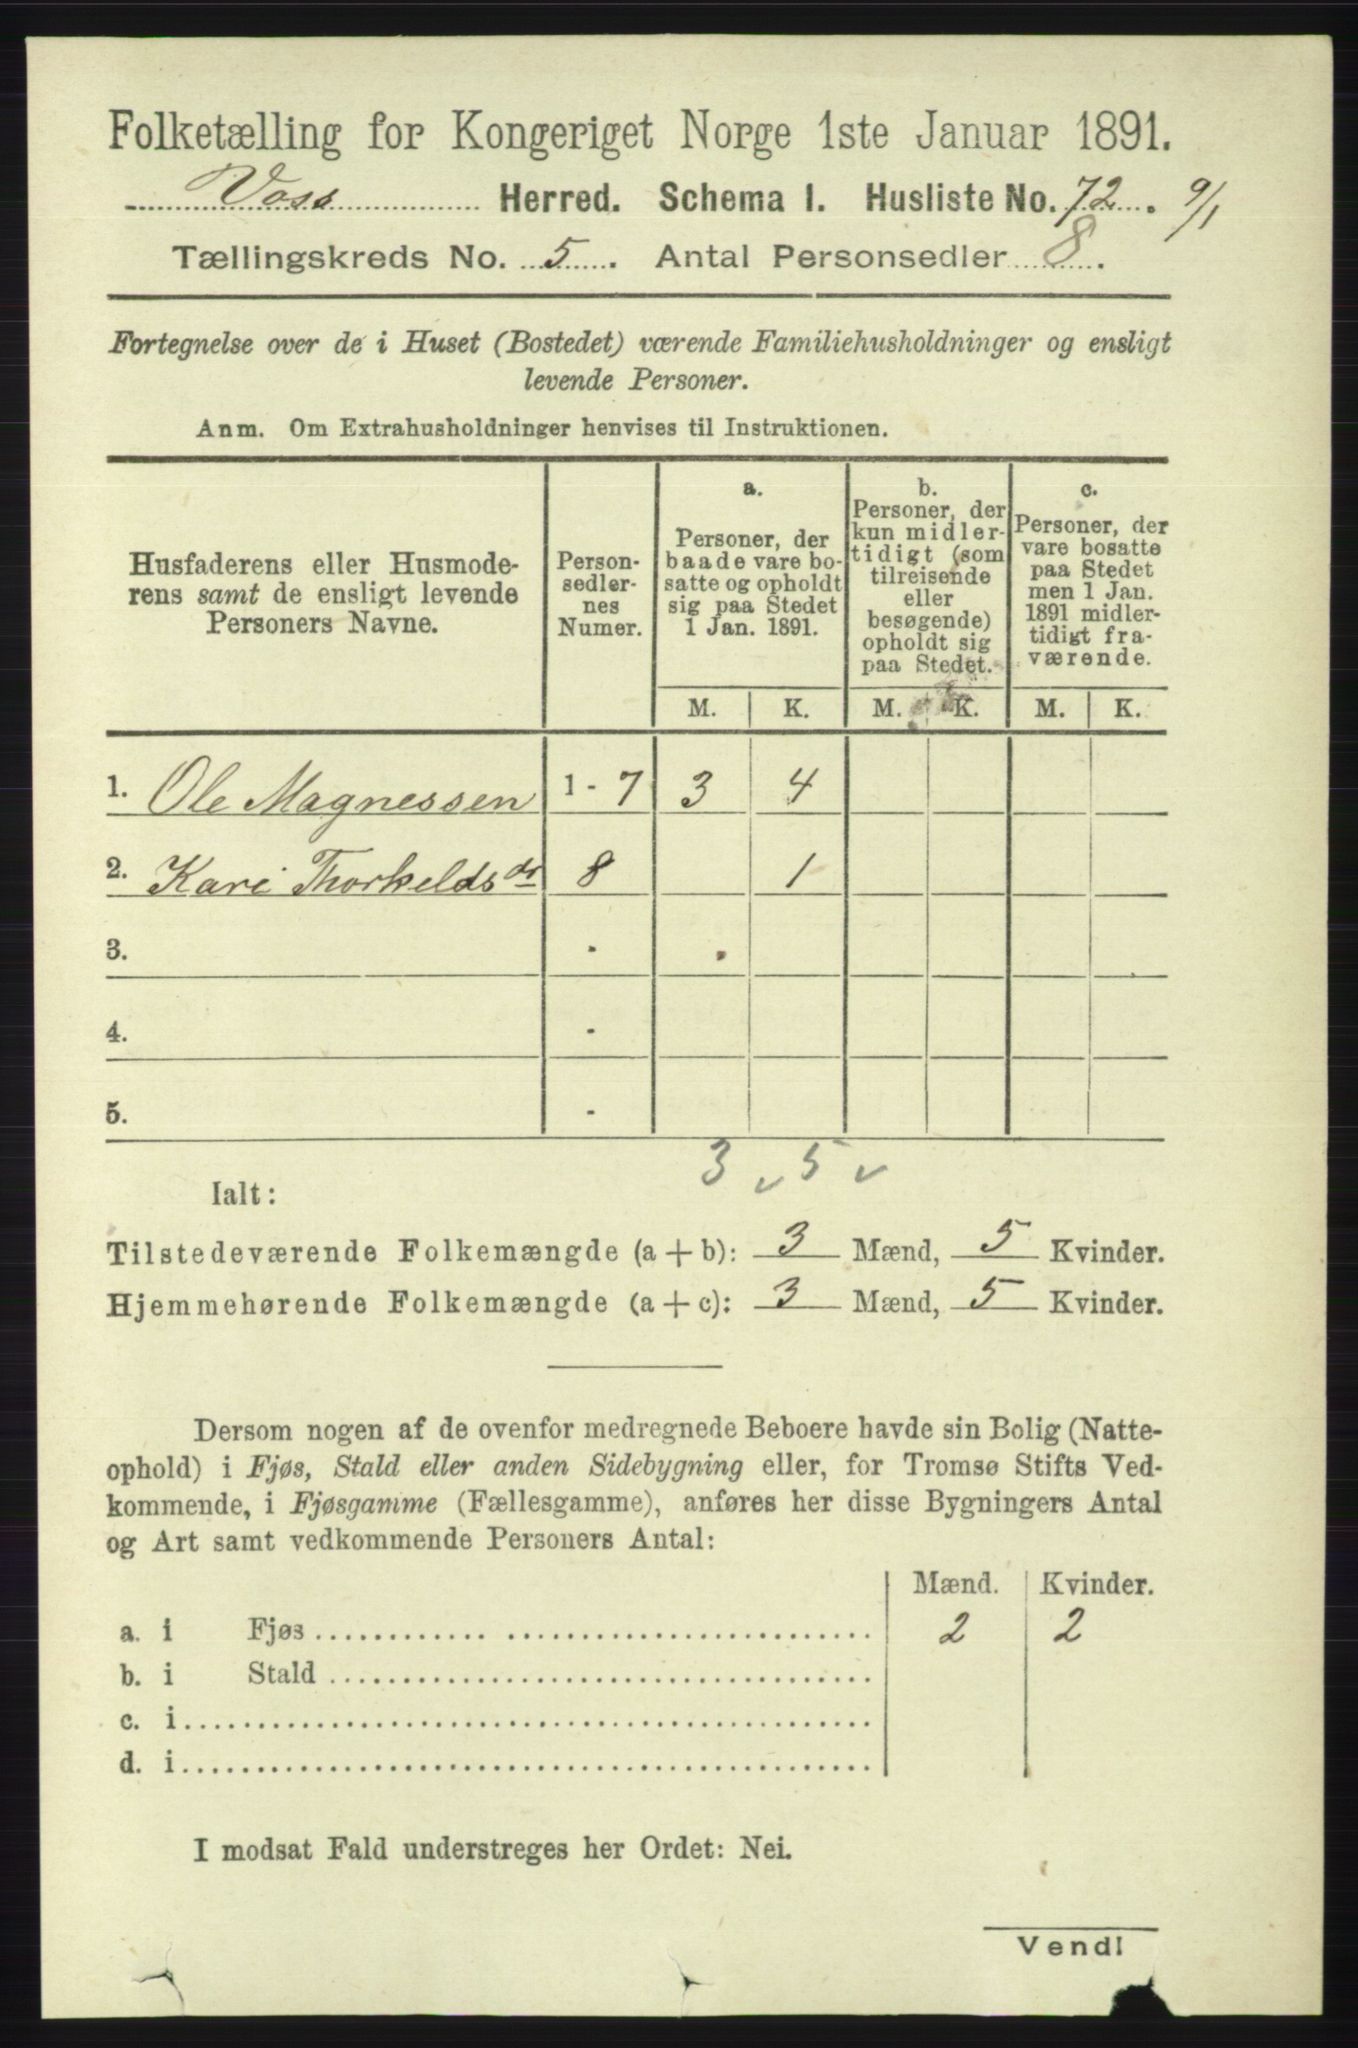 Folketælling for Kongeriget Norge 1ste Januar 1891.
Voss Herred. Schema 1. Husliste No. 72. 9/1
Tællingskreds No. 5. Antal Personsedler 8.
Fortegnelse over de i Huset (Bostedet) værende Familiehusholdninger og ensligt
levende Personer.
Anm. Om Extrahusholdninger henvises til Instruktionen.
Husfaderens eller Husmode-
rens samt de ensligt levende
Personers Navne.
Person-
sedler-
nes
Numer.
a.
Personer, der
baade vare bo-
satte og opholdt
sig paa Stedet
1 Jan. 1891.
b.
Personer, der
kun midler-
tidigt (som
tilreisende
eller
besøgende)
opholdt sig
paa Stedet.
c.
Personer, der
vare bosatte
paa Stedet
men 1 Jan.
1891 midler-
tidigt fra-
værende.
M. K. M. K. M. K.
1. Ole Magnessen 1 - 7 3 4
2. Kari Thorkeldsdr 8 1
3. -
4. -
5. -
3 5
Ialt:
Tilstedeværende Folkemængde (a + b): 3 Mænd, 5 Kvinder.
Hjemmehørende Folkemængde (a + c): 3 Mænd, 5 Kvinder.
Dersom nogen af de ovenfor medregnede Beboere havde sin Bolig (Natte-
ophold) i Fjøs, Stald eller anden Sidebygning eller, for Tromsø Stifts Ved-
kommende, i Fjøsgamme (Fællesgamme), anføres her disse Bygningers Antal
og Art samt vedkommende Personers Antal:
Mænd. Kvinder.
a. i Fjøs 2 2
b. i Stald
c. i
d. i
I modsat Fald understreges her Ordet: Nei.
Vend!